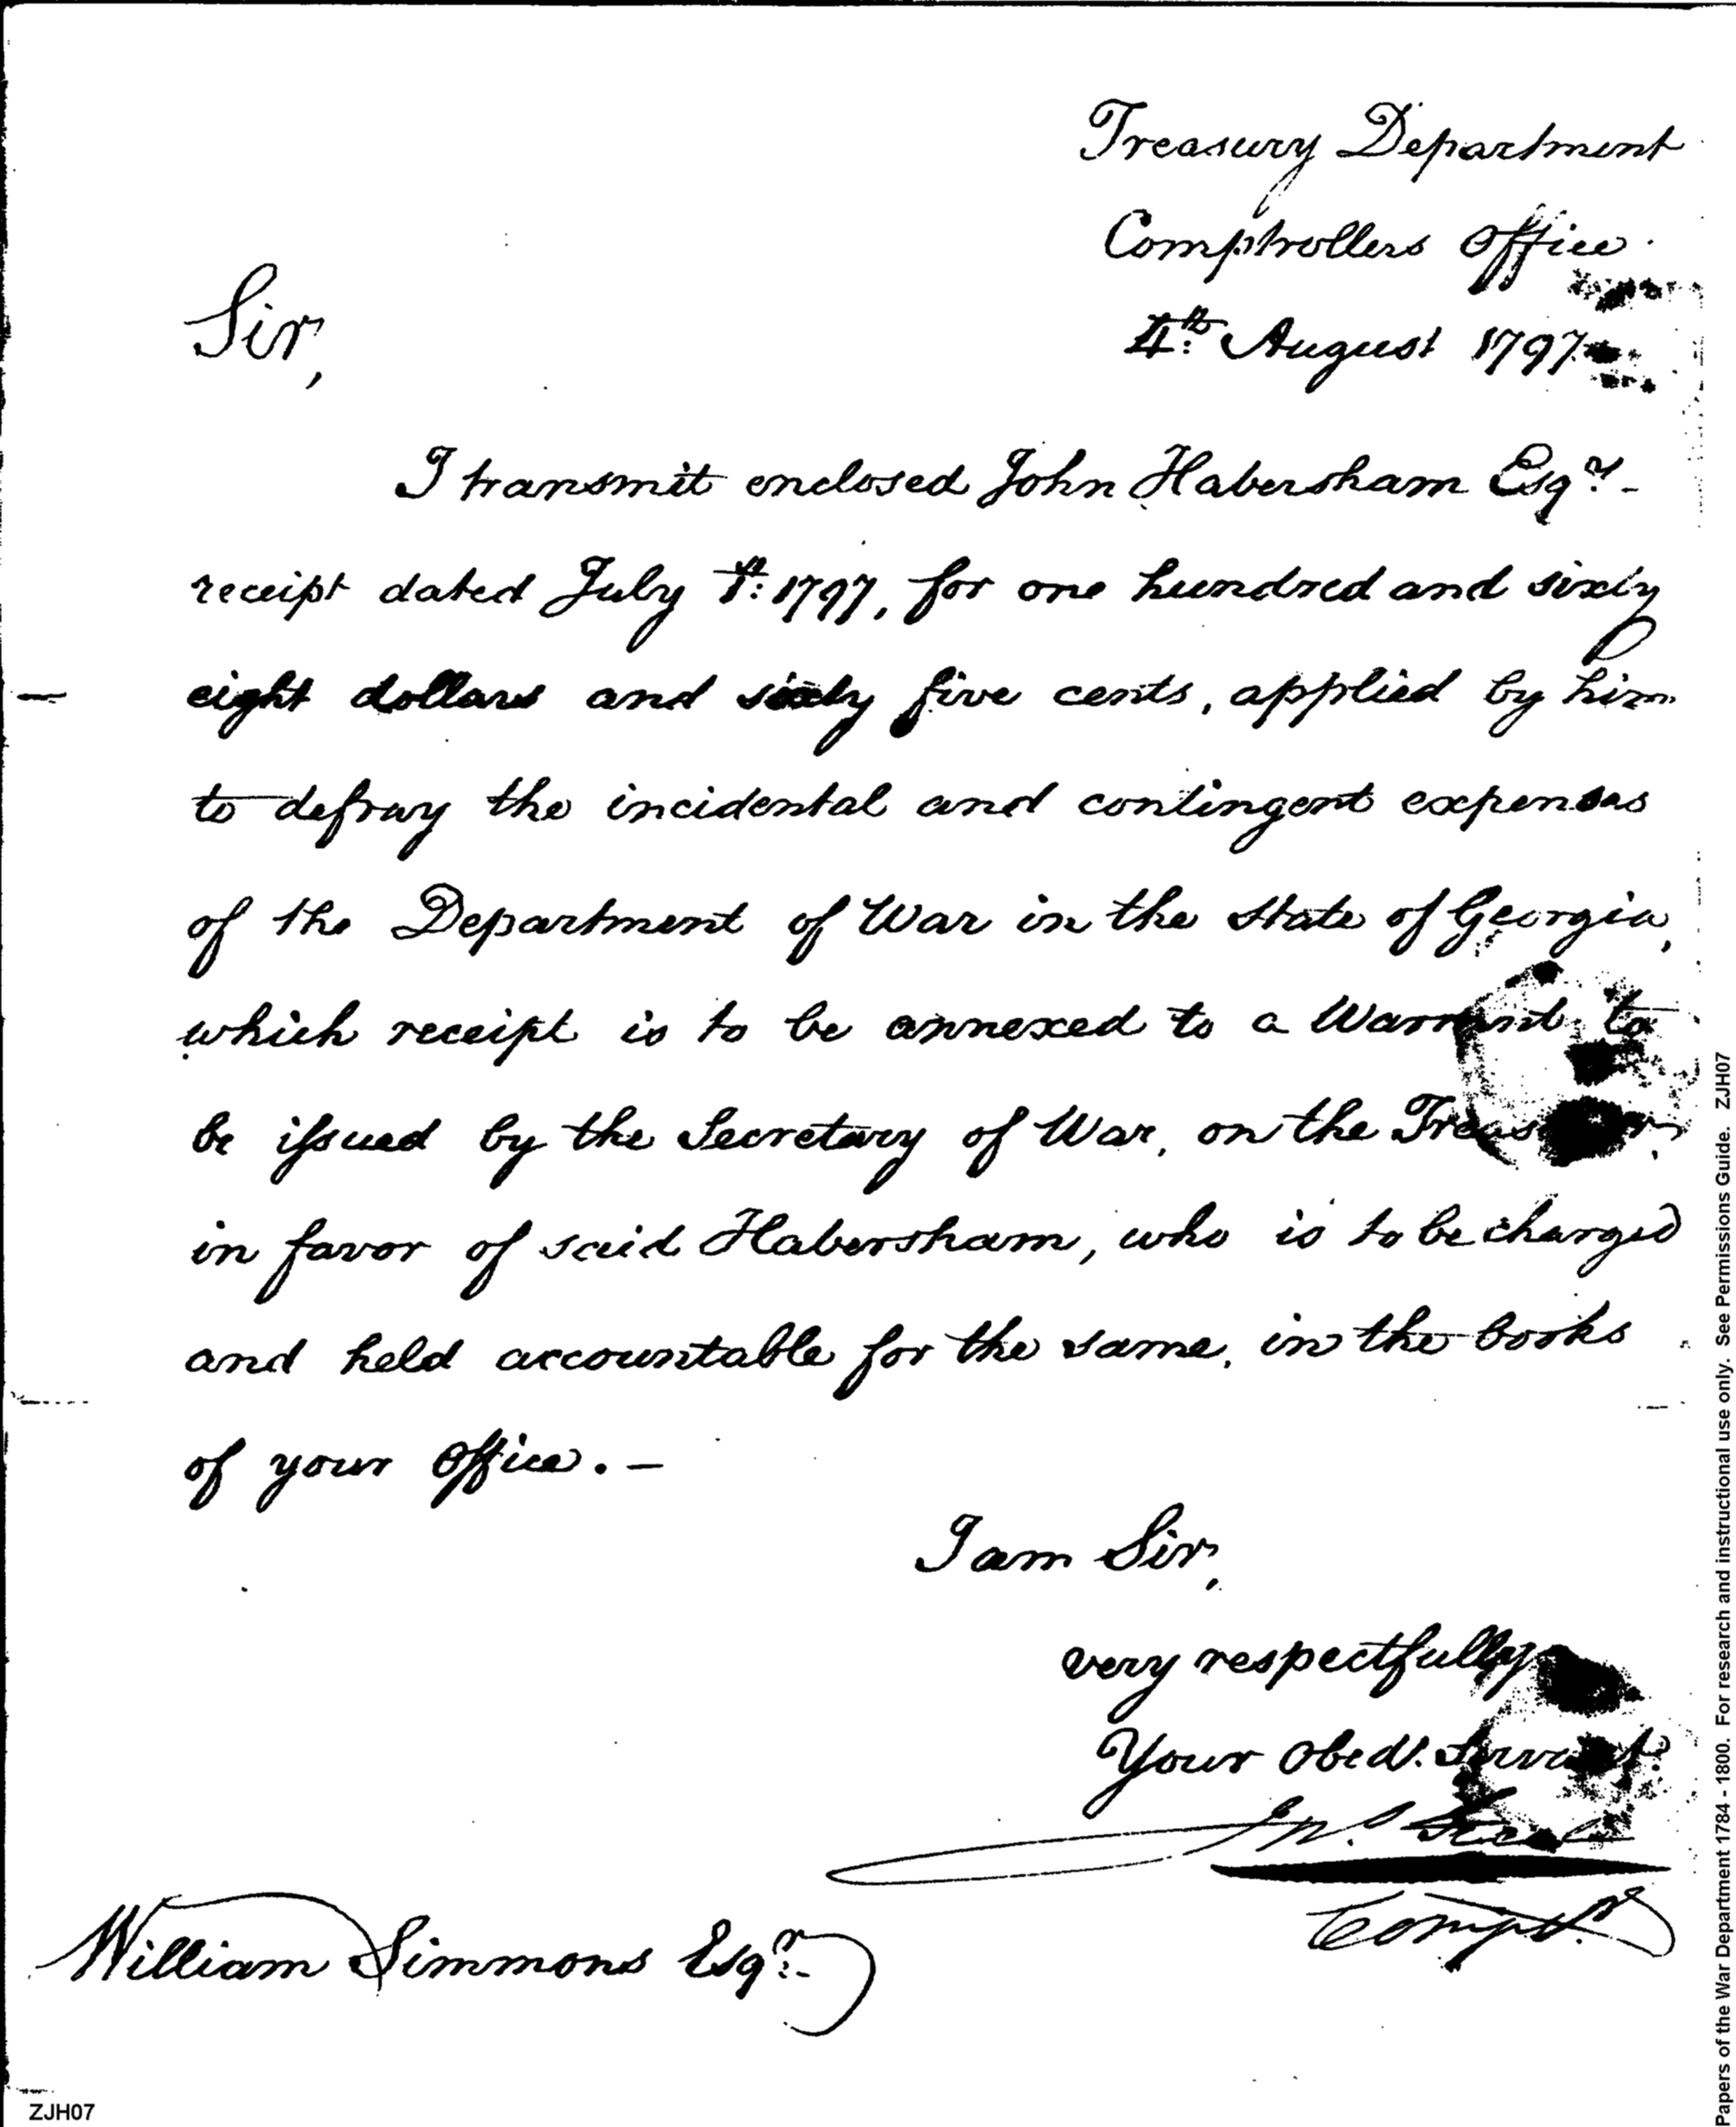 Treasury Department
Comptrollers Office
4th August 1797
Sir,
I transmit enclosed John Habersham Esqr.
receipt dated July 1st: 1797, for one hundred and sixty
eight dollars and sixty five cents, applied by him
to defray the incidental and contingent expenses
of the Department of War in the State of Georgia,
which receipt is to be annexed to a Warrant to
be issued by the Secretary of War, on the
in favor of said Habersham, who is to be charged
and held accountable for the same, in the books
of your Office. -
I am Sir,
very respectfully
Your Obedt. Servant.
Jno. Steele
Compt.
William Simmons Esqr.
ZJH07
Papers of the War Department 1784 - 1800. For research and instructional use only. See Permissions Guide. ZJH07